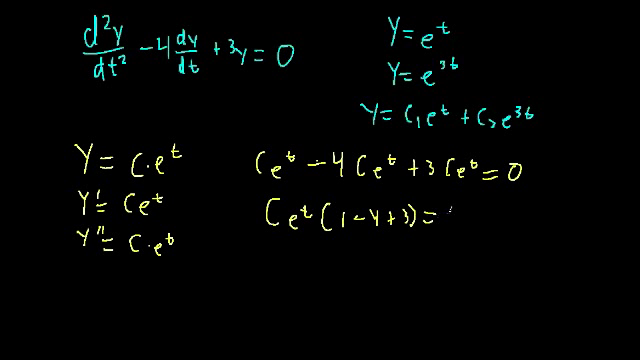 d²y/dt² - 4 dy/dt + 3y = 0
y = e^t
y = e^3t
y = c₁e^t + c₂e^3t
y = c·e^t
y' = ce^t
y'' = c·e^t
ce^t - 4ce^t + 3ce^t = 0
ce^t(1-4+3) =